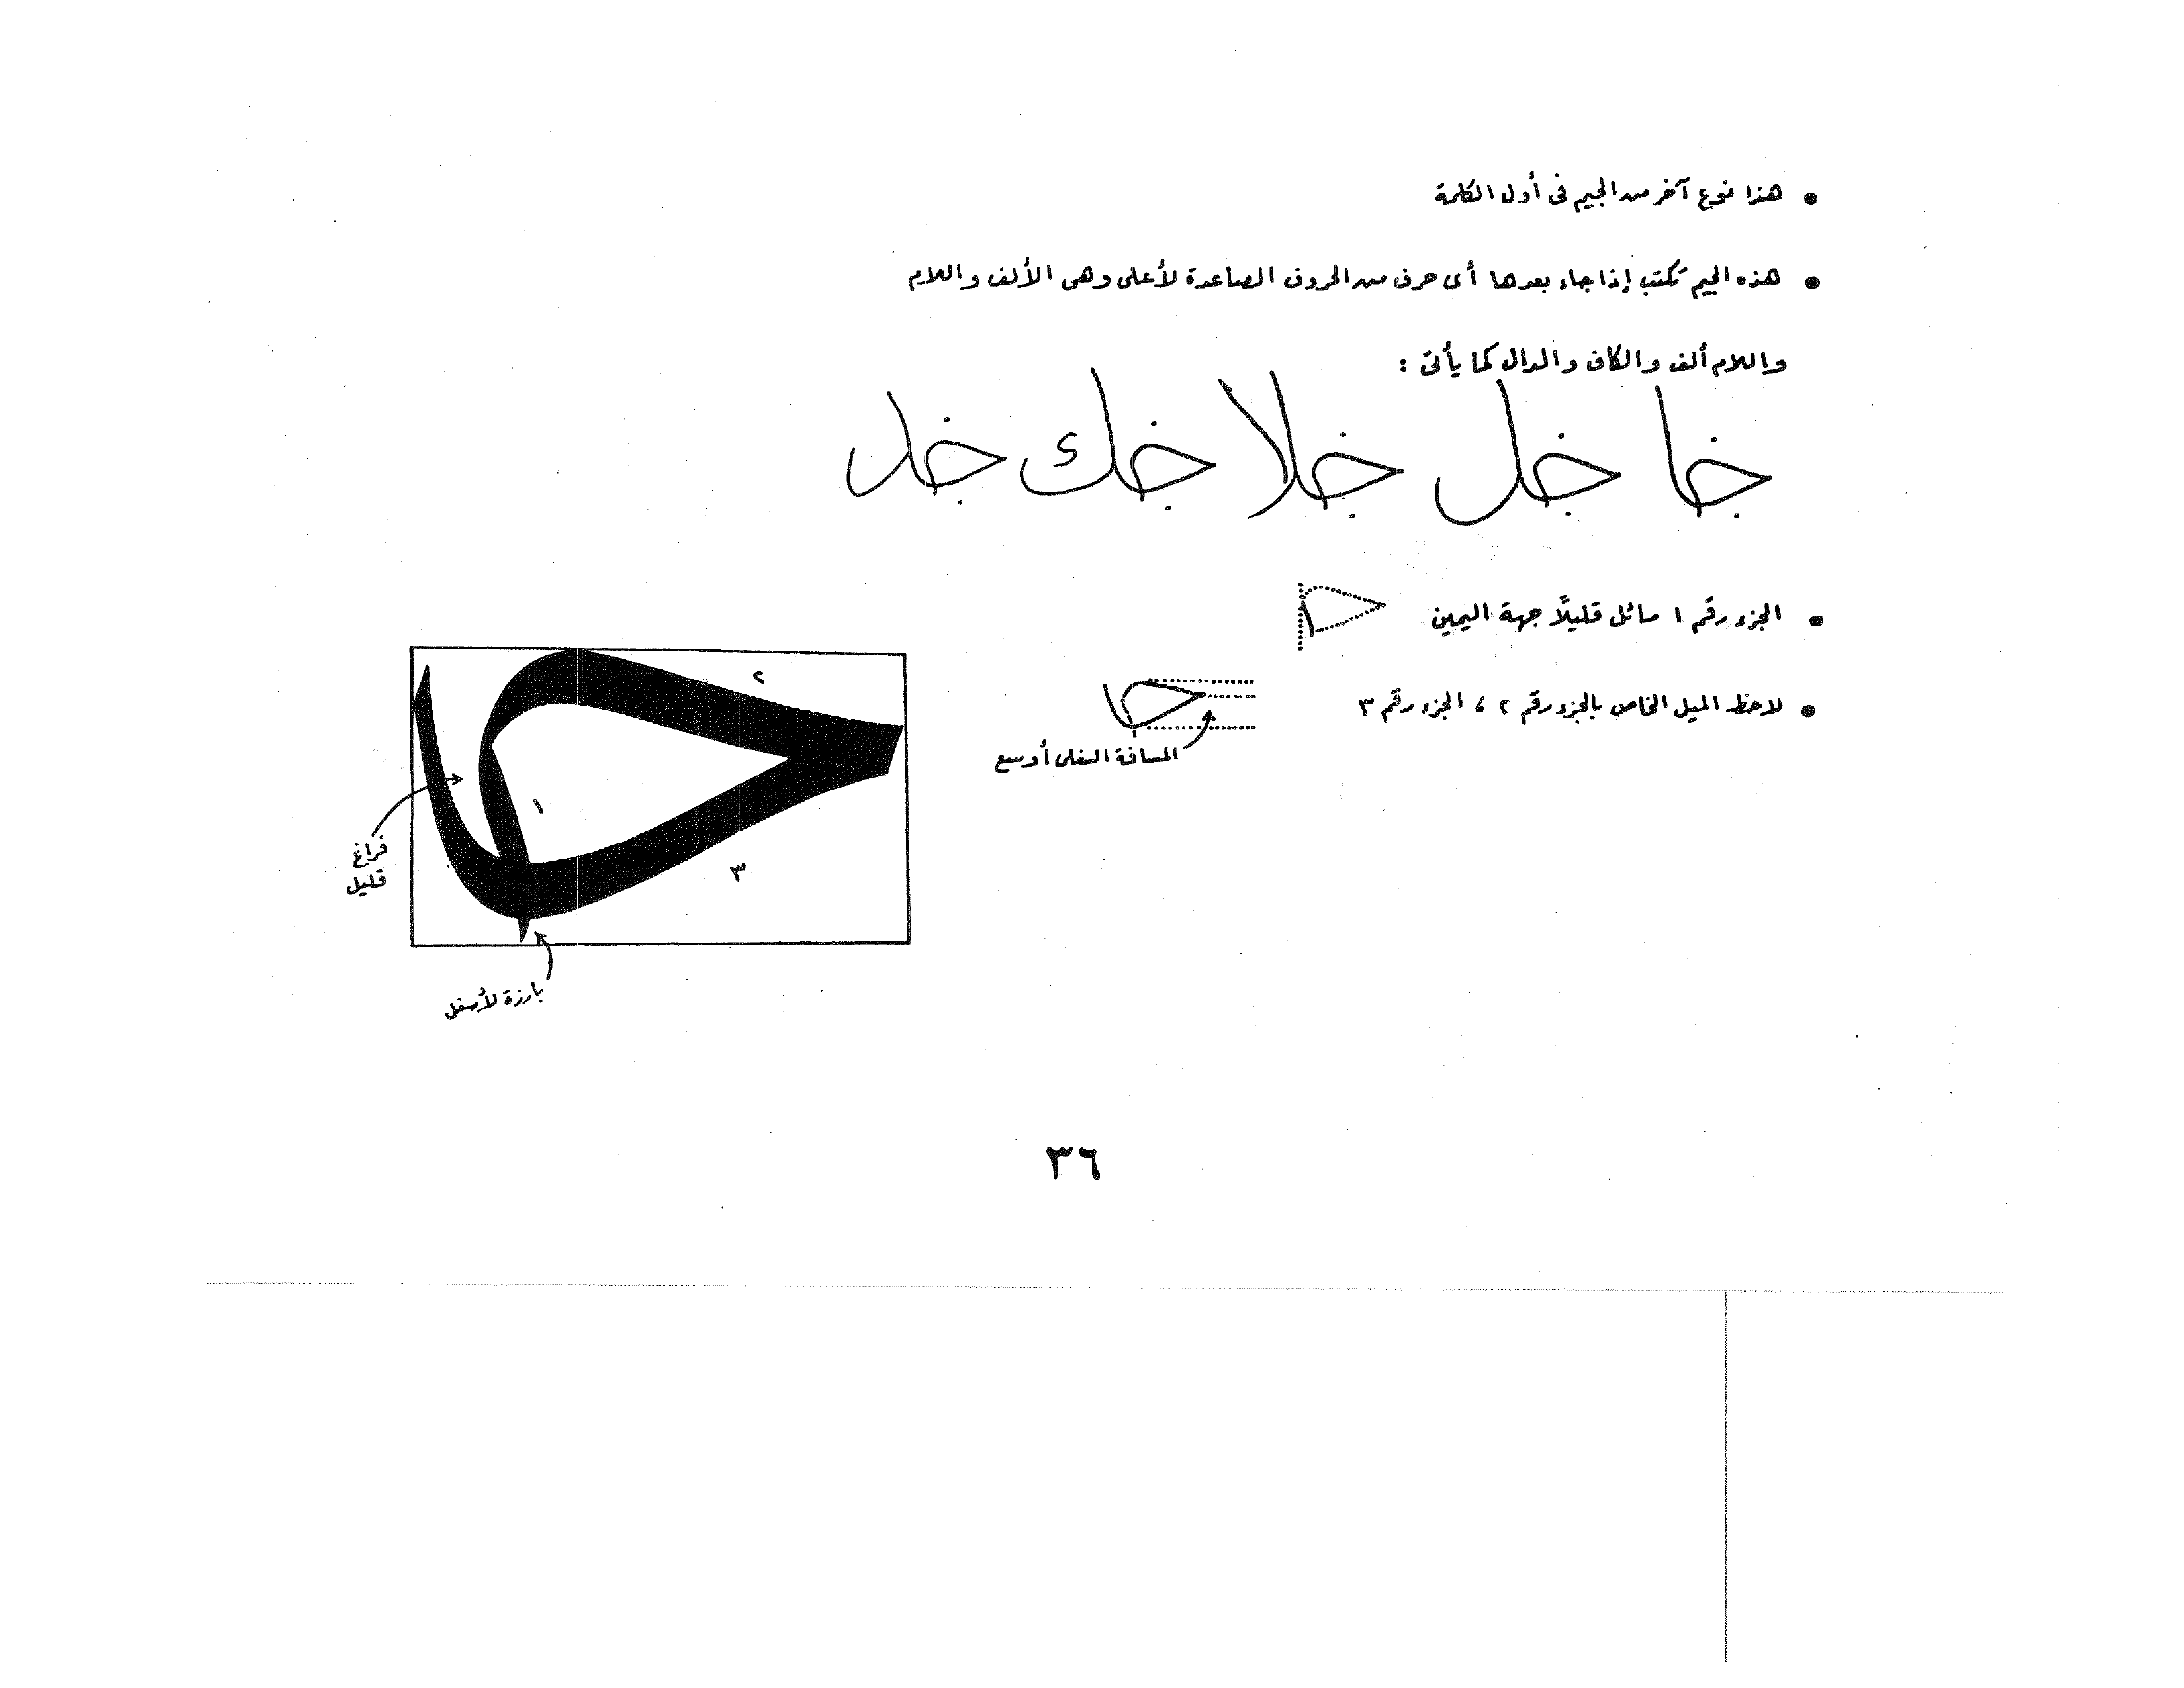 هذا نوع آخر من الجيم فى أول الكلمة
هذه الجيم تكتب إذا جاء بعدها أى حرف من الحروف الصاعدة لأعلى وهى الألف واللام
واللام ألف والكاف والدال كما يأتى :
خا خل خلا خك خد
الجزء رقم ١ مائل قليلًا جهة اليمين
لاحظ الميل الخاص بالجزء رقم ٢ ، الجزء رقم ٣
المسافة السفلى أوسع
٢
١
٣
فراغ
قليل
بارزة لأسفل
٣٦